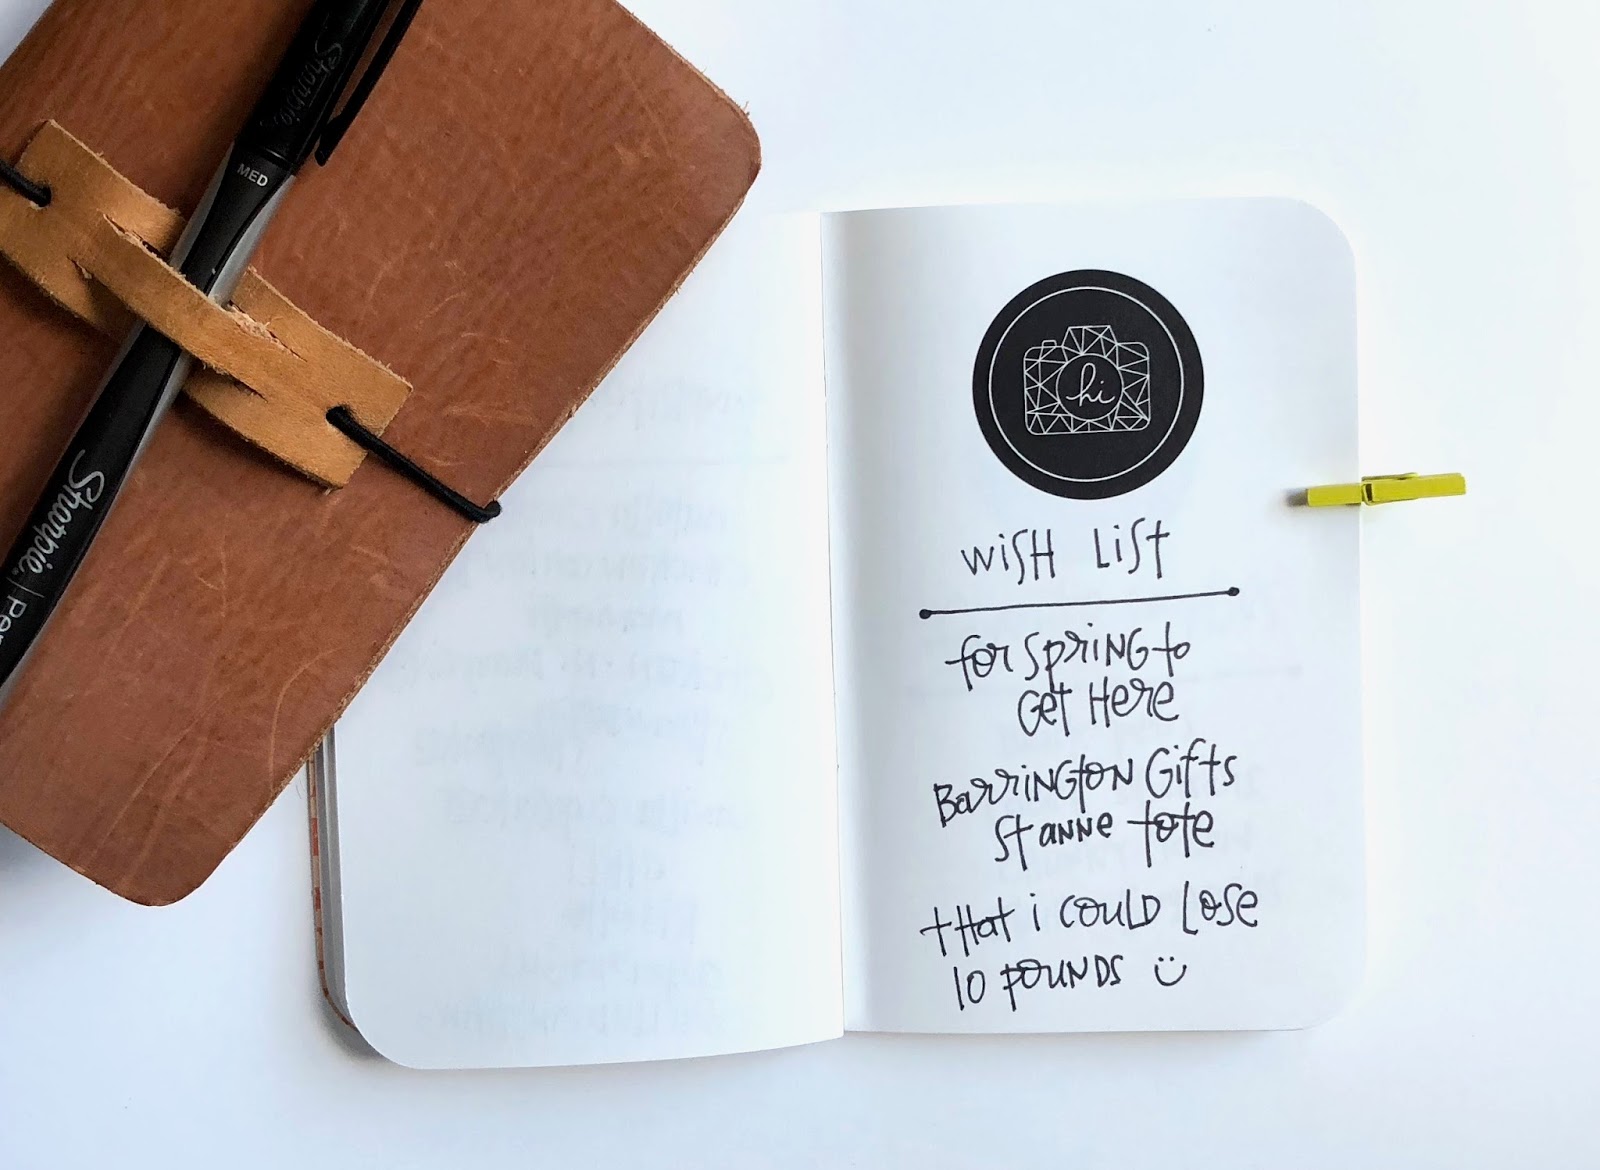 Sharpie
MED
Sharpie. | Pen
hi
WiSH LiST
for SpriNG to
Get Here
BarriNGtoN Gifts
St aNNe tote
tHat i COULD LOSe
10 POUNDS